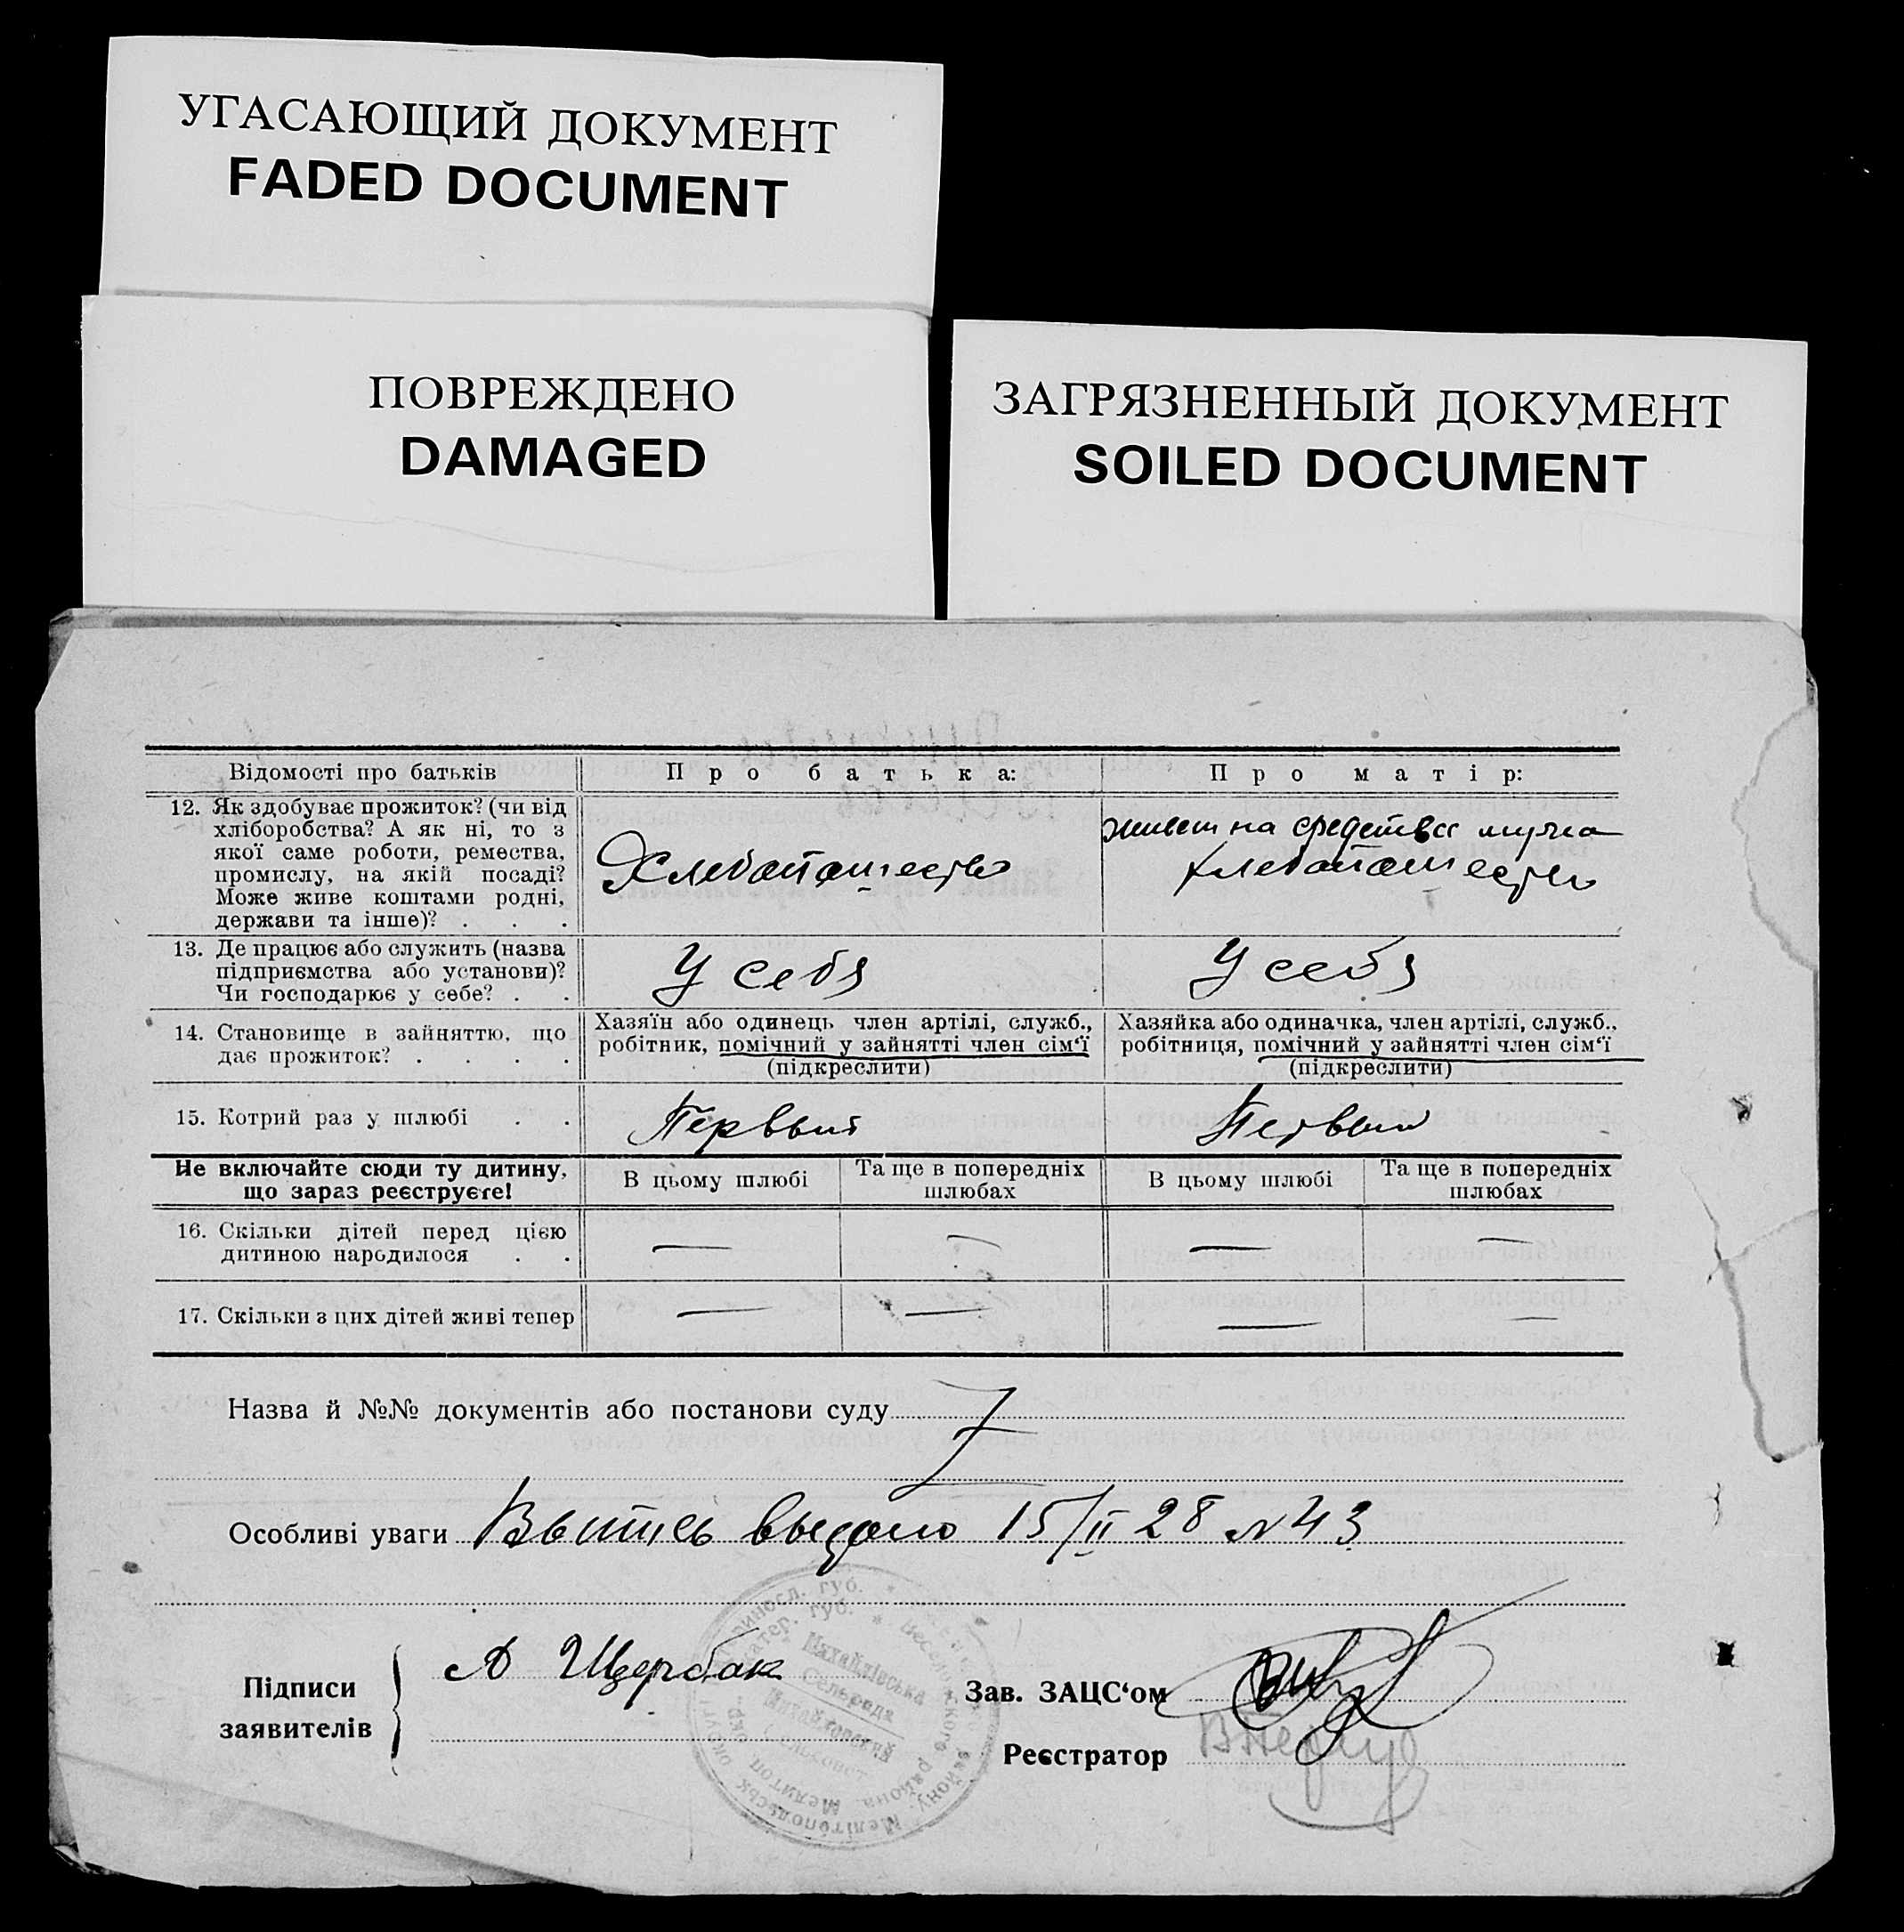 УГАСАЮЩИЙ ДОКУМЕНТ
FADED DOCUMENT
ПОВРЕЖДЕНО
DAMAGED
ЗАГРЯЗНЕННЫЙ ДОКУМЕНТ
SOILED DOCUMENT
Відомості про батьків
Про батька:
Про матір:
12. Як здобуває прожиток? (чи від
хліборобства? А як ні, то з
якої саме роботи, ремества,
промислу, на якій посаді?
Може живе коштами родні,
держави та інше)? . . .
Хлебопашество
живет на средства мужа
хлебопашество
13. Де працює або служить (назва
підприємства або установи)?
Чи господарює у себе? . .
У себя
У себя
14. Становище в зайняттю, що
дає прожиток? . . . .
Хазяїн або одинець член артілі, служб.,
робітник, помічний у зайнятті член сім‘ї
(підкреслити)
Хазяйка або одиначка, член артілі, служб.,
робітниця, помічний у зайнятті член сім‘ї
(підкреслити)
15. Котрий раз у шлюбі . .
Первый
Первый
Не включайте сюди ту дитину,
що зараз реєструєте!
В цьому шлюбі
Та ще в попередніх
шлюбах
В цьому шлюбі
Та ще в попередніх
шлюбах
16. Скільки дітей перед цією
дитиною народилося . .
—
—
—
—
17. Скільки з цих дітей живі тепер
—
—
—
—
Назва й №№ документів або постанови суду
Особливі уваги Выпись выдано 15/II 28 N 43
Підписи
заявителів
А Щербак
Михайлівська
Сельрада
Михайловский
Сельсовет
Зав. ЗАЦС‘ом
Реєстратор